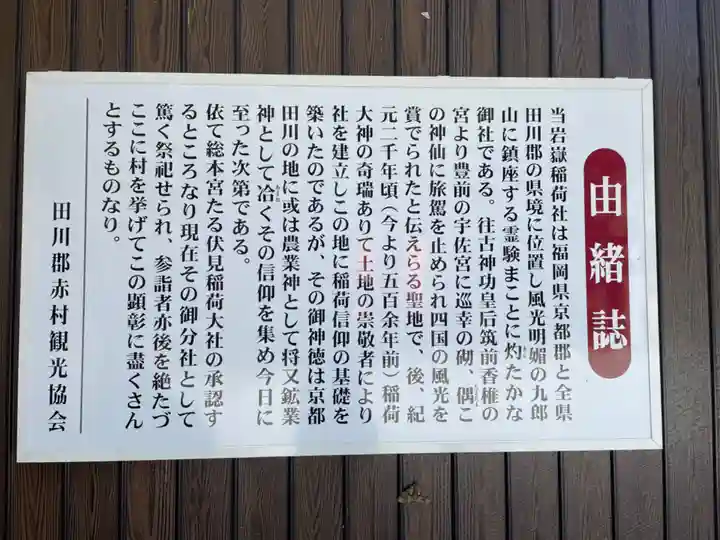 由緒誌
当岩嶽稲荷社は福岡県京都郡と全県
田川郡の県境に位置し風光明媚の九郎
山に鎮座する霊験まことに灼たかな
御社である。往古神功皇后筑前香椎の
宮より豊前の宇佐宮に巡幸の砌、偶こ
の神仙に旅駕を止められ四国の風光を
賞でられたと伝えらる聖地で、後、紀
元二千年頃(今より五百余年前)稲荷
大神の奇瑞ありて土地の崇敬者により
社を建立しこの地に稲荷信仰の基礎を
築いたのであるが、その御神徳は京都
田川の地に或は農業神として将又鉱業
神として洽くその信仰を集め今日に
至った次第である。
依て総本宮たる伏見稲荷大社の承認す
るところなり現在その御分社として
篤く祭祀せられ、参詣者亦後を絶たづ
ここに村を挙げてこの顕彰に盡くさん
とするものなり。
田川郡赤村観光協会